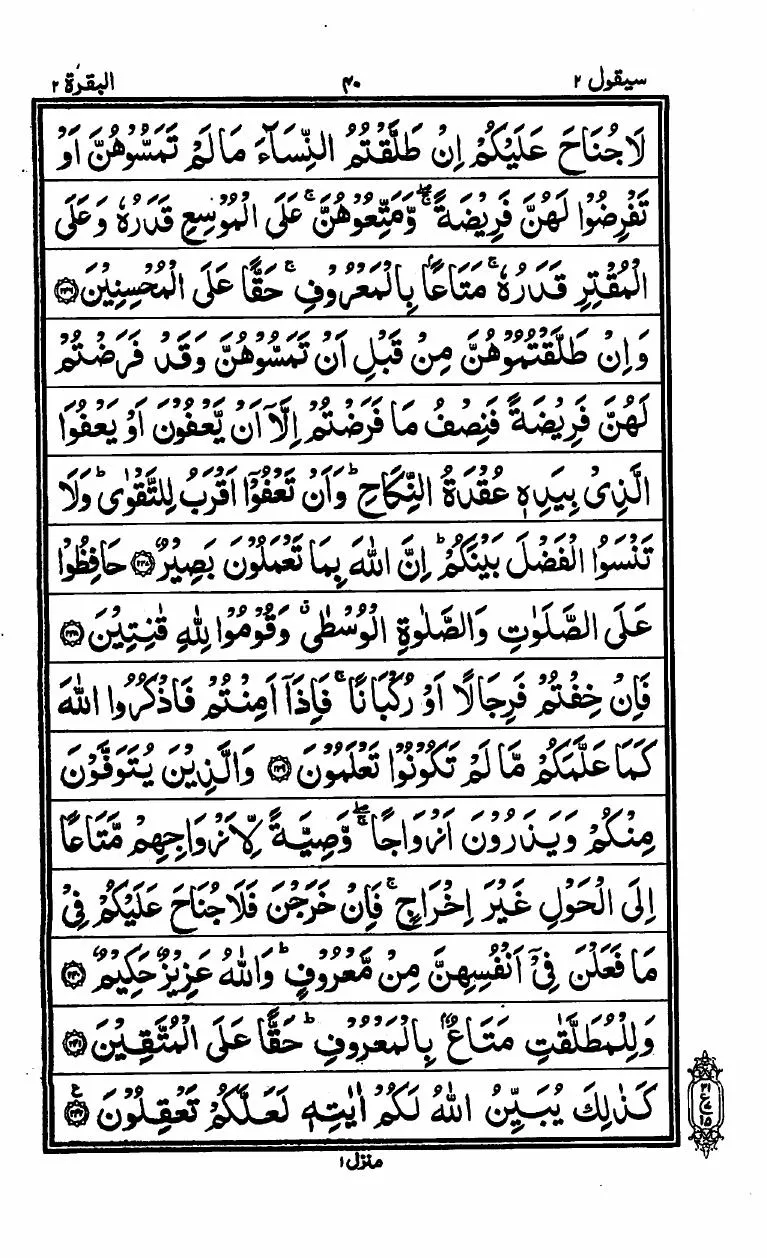 سيقول ٢ ٤٠ البقرة ٢
لَا جُنَاحَ عَلَيْكُمْ اِنْ طَلَّقْتُمُ النِّسَآءَ مَا لَمْ تَمَسُّوْهُنَّ اَوْ
تَفْرِضُوْا لَهُنَّ فَرِيْضَةً ۚۖ وَّمَتِّعُوْهُنَّ ۚ عَلَى الْمُوْسِعِ قَدَرُهٗ وَعَلَى
الْمُقْتِرِ قَدَرُهٗ ۚ مَتَاعًا ۢ بِالْمَعْرُوْفِ ۚ حَقًّا عَلَى الْمُحْسِنِيْنَ ﴿۲۳۶﴾
وَاِنْ طَلَّقْتُمُوْهُنَّ مِنْ قَبْلِ اَنْ تَمَسُّوْهُنَّ وَقَدْ فَرَضْتُمْ
لَهُنَّ فَرِيْضَةً فَنِصْفُ مَا فَرَضْتُمْ اِلَّاۤ اَنْ يَّعْفُوْنَ اَوْ يَعْفُوَا
الَّذِىْ بِيَدِهٖ عُقْدَةُ النِّكَاحِ ؕ وَاَنْ تَعْفُوْۤا اَقْرَبُ لِلتَّقْوٰى ؕ وَلَا
تَنْسَوُا الْفَضْلَ بَيْنَكُمْ ؕ اِنَّ اللّٰهَ بِمَا تَعْمَلُوْنَ بَصِيْرٌ ﴿۲۳۷﴾ حَافِظُوْا
عَلَى الصَّلَوٰتِ وَالصَّلٰوةِ الْوُسْطٰى ۗ وَقُوْمُوْا لِلّٰهِ قٰنِتِيْنَ ﴿۲۳۸﴾
فَاِنْ خِفْتُمْ فَرِجَالًا اَوْ رُكْبَانًا ۚ فَاِذَاۤ اَمِنْتُمْ فَاذْكُرُوا اللّٰهَ
كَمَا عَلَّمَكُمْ مَّا لَمْ تَكُوْنُوْا تَعْلَمُوْنَ ﴿۲۳۹﴾ وَالَّذِيْنَ يُتَوَفَّوْنَ
مِنْكُمْ وَيَذَرُوْنَ اَزْوَاجًا ۚۖ وَّصِيَّةً لِّاَزْوَاجِهِمْ مَّتَاعًا
اِلَى الْحَوْلِ غَيْرَ اِخْرَاجٍ ۚ فَاِنْ خَرَجْنَ فَلَا جُنَاحَ عَلَيْكُمْ فِىْ
مَا فَعَلْنَ فِىْۤ اَنْفُسِهِنَّ مِنْ مَّعْرُوْفٍ ؕ وَاللّٰهُ عَزِيْزٌ حَكِيْمٌ ﴿۲۴۰﴾
وَلِلْمُطَلَّقٰتِ مَتَاعٌ ۢ بِالْمَعْرُوْفِ ؕ حَقًّا عَلَى الْمُتَّقِيْنَ ﴿۲۴۱﴾
كَذٰلِكَ يُبَيِّنُ اللّٰهُ لَكُمْ اٰيٰتِهٖ لَعَلَّكُمْ تَعْقِلُوْنَ ﴿۲۴۲﴾ ع
٣١
ع
١٥
منزل ١